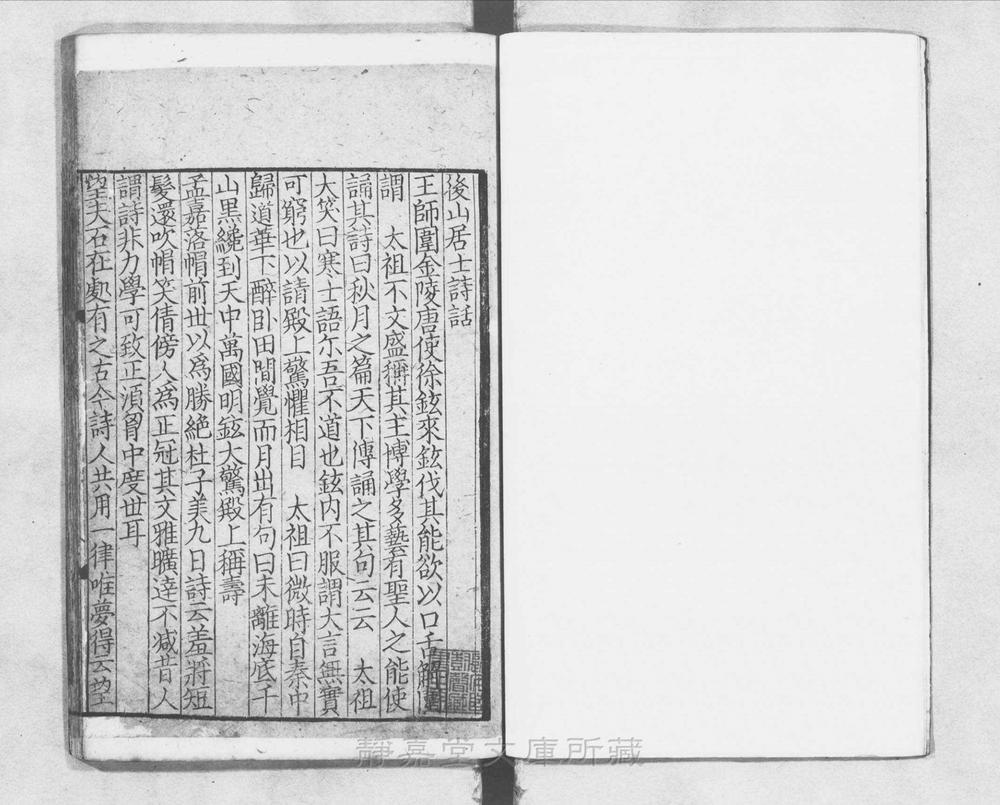 後山居士詩話
王師圍金陵唐使徐鉉來鉉伐其能欲以口舌解圍
謂　太祖不文盛稱其主博學多藝有聖人之能使
誦其詩曰秋月之篇天下傳誦之其句云云　太祖
大笑曰寒士語尓吾不道也鉉内不服謂大言無實
可窮也以請殿上驚懼相目　太祖曰微時自秦中
歸道華下醉卧田間覺而月出有句曰未離海底千
山黒纔到天中萬國明鉉大驚殿上稱壽
孟嘉落帽前世以為勝絶杜子美九日詩云羞將短
髮還吹帽笑倩傍人為正冠其文雅曠逹不减昔人
謂詩非力學可致正須胷中度世耳
望夫石在處有之古今詩人共用一律唯夢得云望
静嘉堂文庫所藏